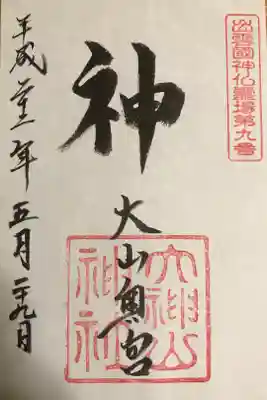 出雲國神仏霊場第九番
神
大山奥宮
大神山
神社
平成廿二年五月二十九日